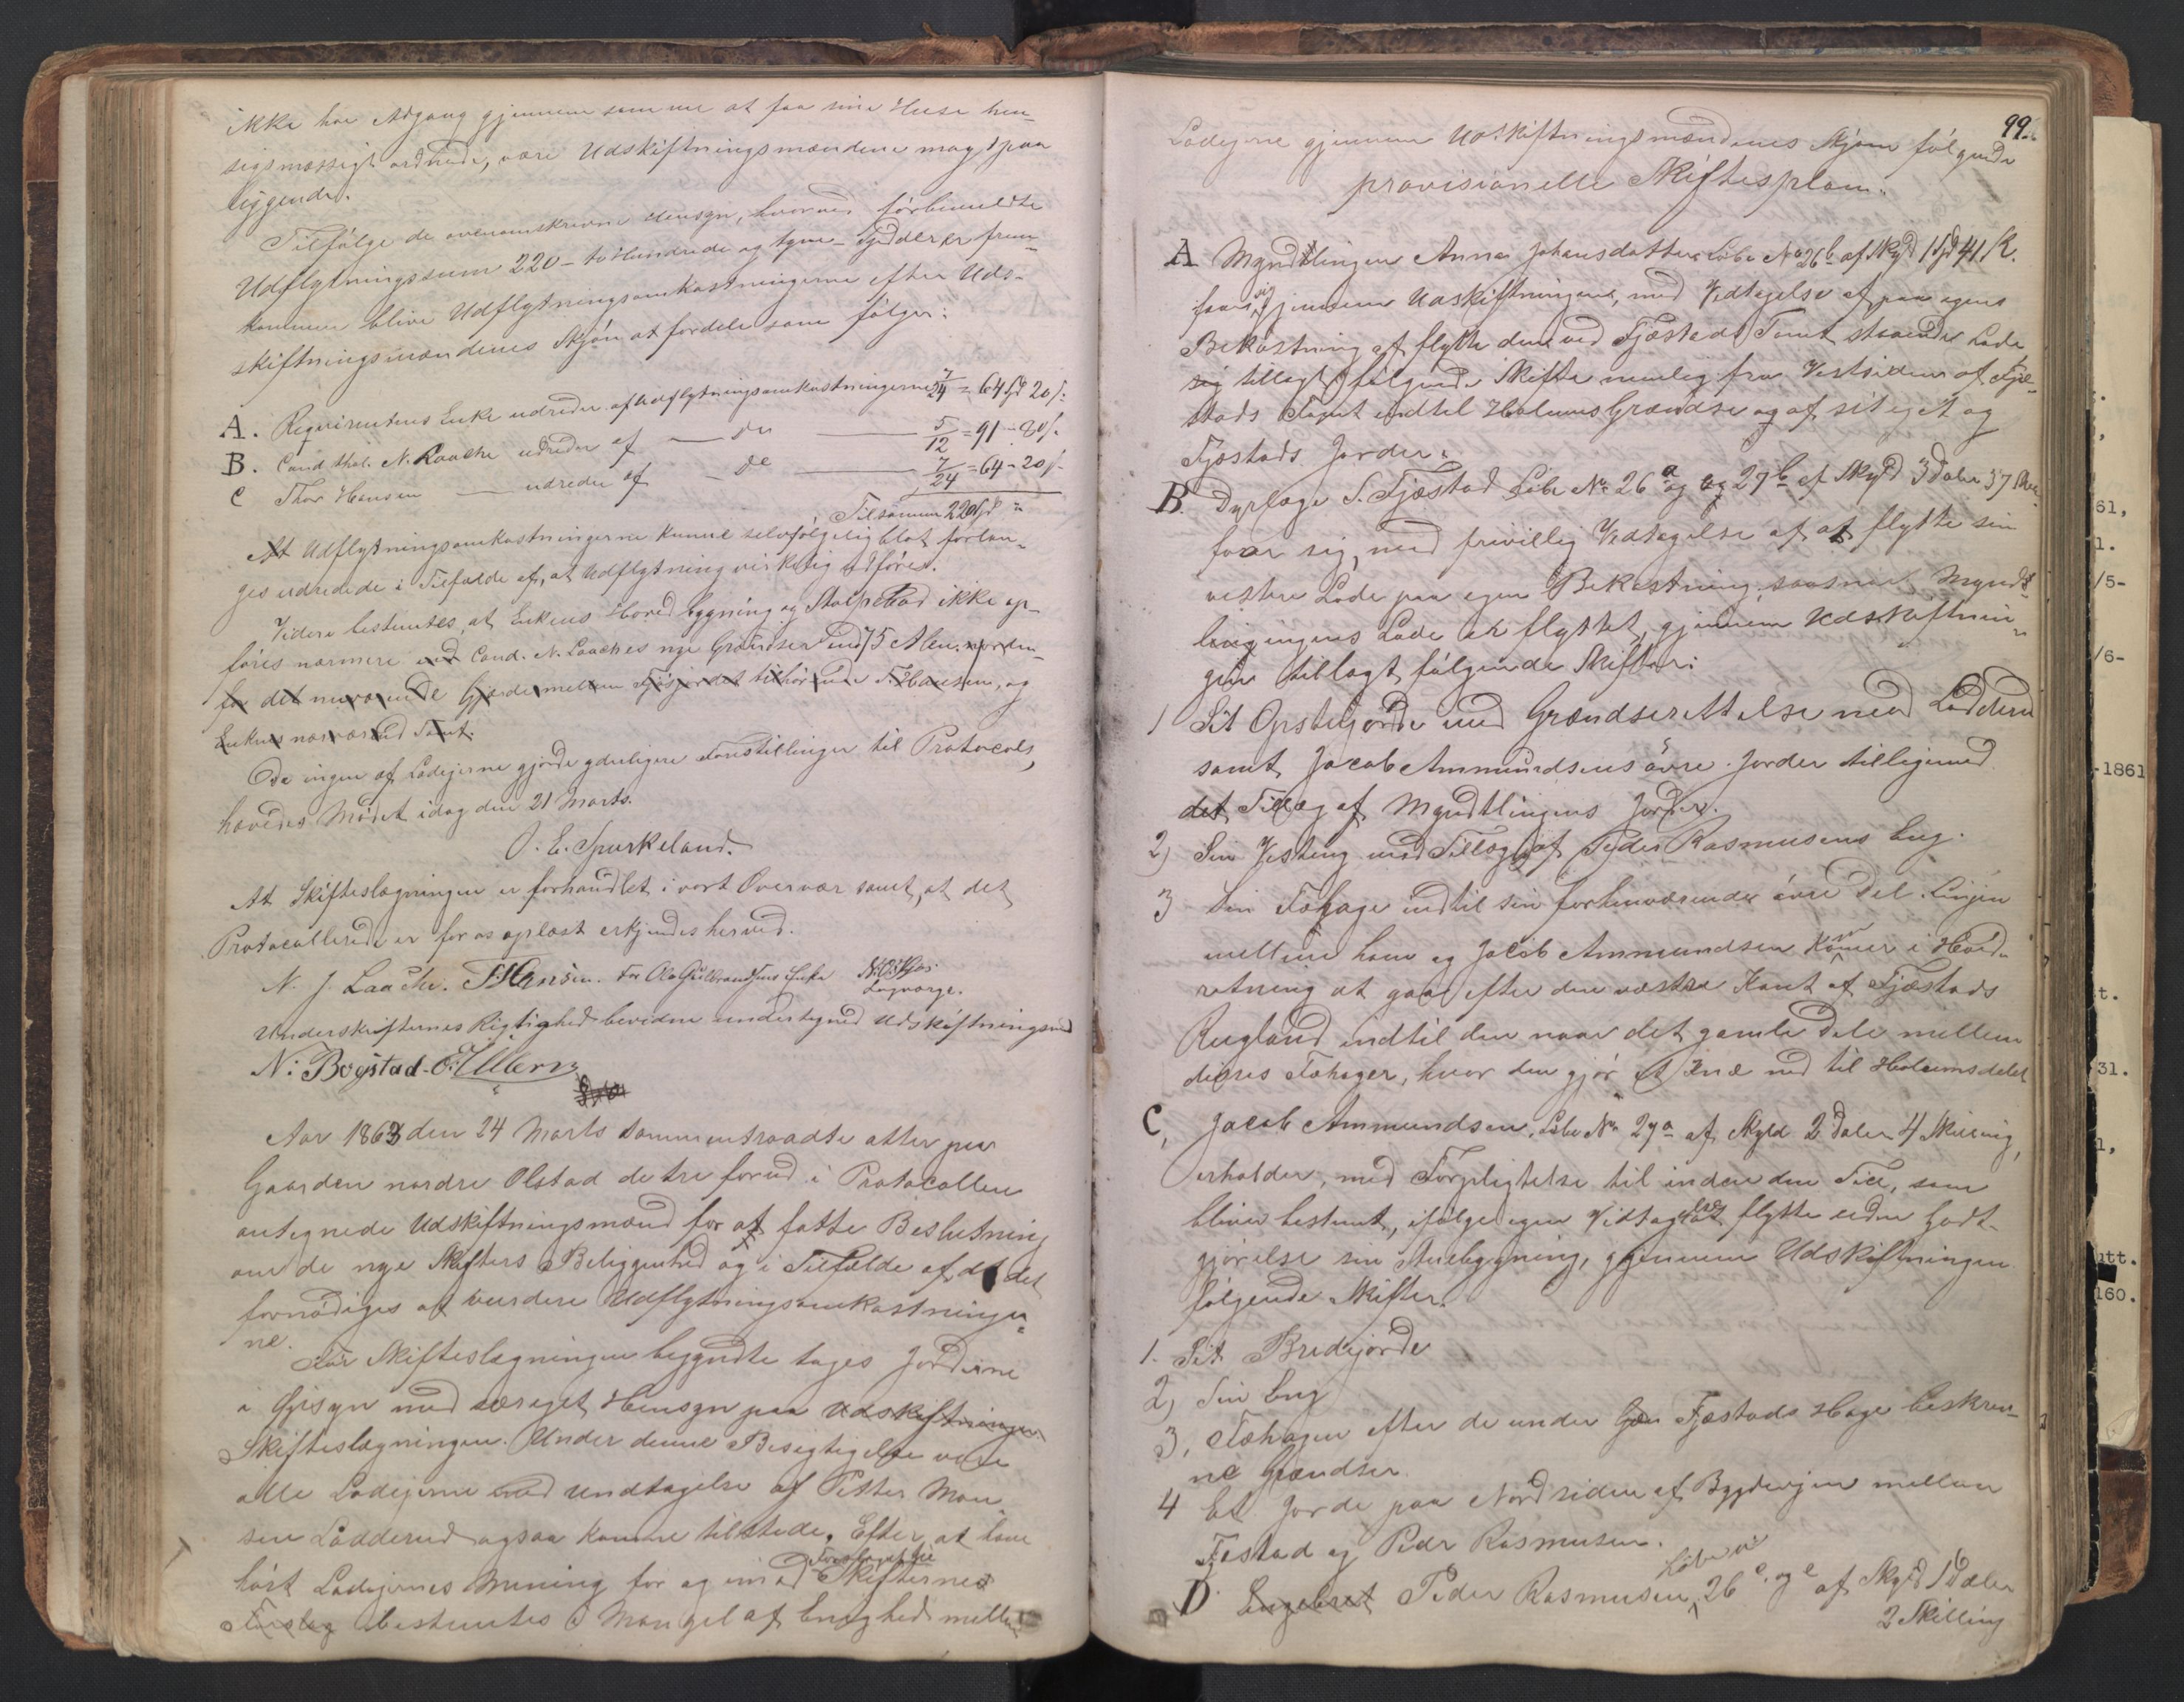 ikke har Adgang gjennem samme at faa sine Huse hen-
sigsmæssigt ordnede, være Udskiftningsmændene magtpaa
liggende.
Tilfølge de ovenomskrevne Hensyn, hvorved forbemeldte
Udflytningssum 220 - to Hundrede og tyve - Spddlr er frem-
kommen blive Udflytningsomkostningerne efter Uds-
skiftningsmændenes Skjøn at fordele som følger:
A. Reqvirentens Enke udreder af Udflytningsomkostningerne 7/24 = 64 Spd 20 s.
B. Cand. thol. N. Laache udreder af — do — 5/12 = 91 - 80 s.
C Thor Hansen — udreder af — do — 7/24 = 64 - 20 s.
Tilsammen 220 Spd "
At Udflytningsomkostningerne kunne selvfølgelig blot forlan-
ges udredede i Tilfælde af, at Udflytning virkelig udføres.
Videre bestemtes, at Enkens Hovedbygning og Stolpebod ikke op-
føres nærmere end Cand. N. Laaches nye Grændser end 75 Alen. norden-
for det nuværende Gjærde mellem tilhørende T. Hansen, og
Enkens nærværend Tomt.
Da ingen af Lodejerne gjorde yderligere Fremstillinger til Protocols,
hævedes Mødet idag den 21 Marts.
O. E. Spurkeland.
At Skifteslægningen er forhandlet i vort Overvær samt, at det
Protocollerede er for os oplæst erkjendes herved.
N. J. Laache. T. Hansen. For Ola Gulbrandsens Enke
Laugværge.
Underskrifternes Rigtighed bevidne undertegned Udskiftningsmd
N: Bogstad. O: Ullern
Aar 1863 den 24 Marts sammentraadte atter paa
Gaarden nordre Olstad de tre forud i Protocollen
antegnede Udskiftningsmænd for at fatte Beslutning
om de nye Skifters Beliggenhed og i Tilfælde af det
fornødiges at vurdere Udflytningsomkostninger-
ne.
Før Skifteslægningen begyndte toges Jorderne
i Øjesyn med særeget Hensyn paa Udskiftningen
Skifteslægningen. Under denne Besigtigelse vare
alle Lodejerne med Undtagelse af Petter Mon
sen Ladderud ogsaa komne tilstede. Efter at have
Forslaget til
hørt Lodejernes Mening for og imod Skifternes
Forslag bestemtes i Mangel af Enighed mellem
99.
Lodejerne gjennem Udskiftningsmændenes Skjøn følgende
provisionelle Skiftesplan.
A Myndtlingen Anna Johansdatter Løbe No 26 b af Skyld 1 Spd 41 s.
faar sig gjennem Udskiftningen, med Vedtagelse af paa egens
Bekostning at flytte den ved Fjæstads Tomt staaende Lade
sig tillagt følgende Skifte nemlig fra Vestsiden af Fjæ-
stads Tomt indtil Holums Grændse og af sit eget og
Fjæstads Jorder.
B. Dyrlæge S. Fjæstad Løbe No 26 a og 27 b af Skyld 3 Daler 37 Skil
faar sig, med frivillig Vedtagelse af at flytte sin
vestre Lade paa egen Bekostning, saasnart Myndt-
lingens Lade er flyttet, gjennem Udskiftnin-
gen tillagt følgende Skifter:
1 Sit Opstejorde med Grændserettelse med Ladderud
samt Jacob Ammundsens øvre Jorder tilligemed
det Tillæg af Myndtlingens Jorder.
2) Sin Vesteng med Tillæg af Peder Rasmusens Eng.
3 Sin Fæhage indtil sin forhenværende øvre Del. Linjen
mellem ham og Jacob Ammundsen kommer i Hoved-
retning at gaa efter den østre Kant af Fjæstads
Rugland indtil den naar det gamle Dele mellem
deres Fæhager, hvor den gjør et Knæ ned til Holumsdelet
C, Jacob Ammundsen, Løbe No 27 a af Skyld 2 Daler 4 Skilling,
erholder, med Forpligtelse til inden den Tid, som
bliver bestemt, ifølge egen Vedtagelse at flytte uden Godt-
gjørelse sin Stuebygning, gjennem Udskiftningen
følgende Skifter.
1. Sit Bredejorde
2) Sin Eng
3, Fæhagen efter de under Fjæstads Hage beskrev-
ne Grændser.
4 Et Jorde paa Nordsiden af Bygdevejen mellem
Fjæstad og Peder Rasmusen.
Løbe No
D. Engebret Peder Rasmusen, 26 c. og e af Skyld 1 Daler
2 Skilling
61,
1.
/5-
/6-
-1861
t.
31.
1,
utt.
160.